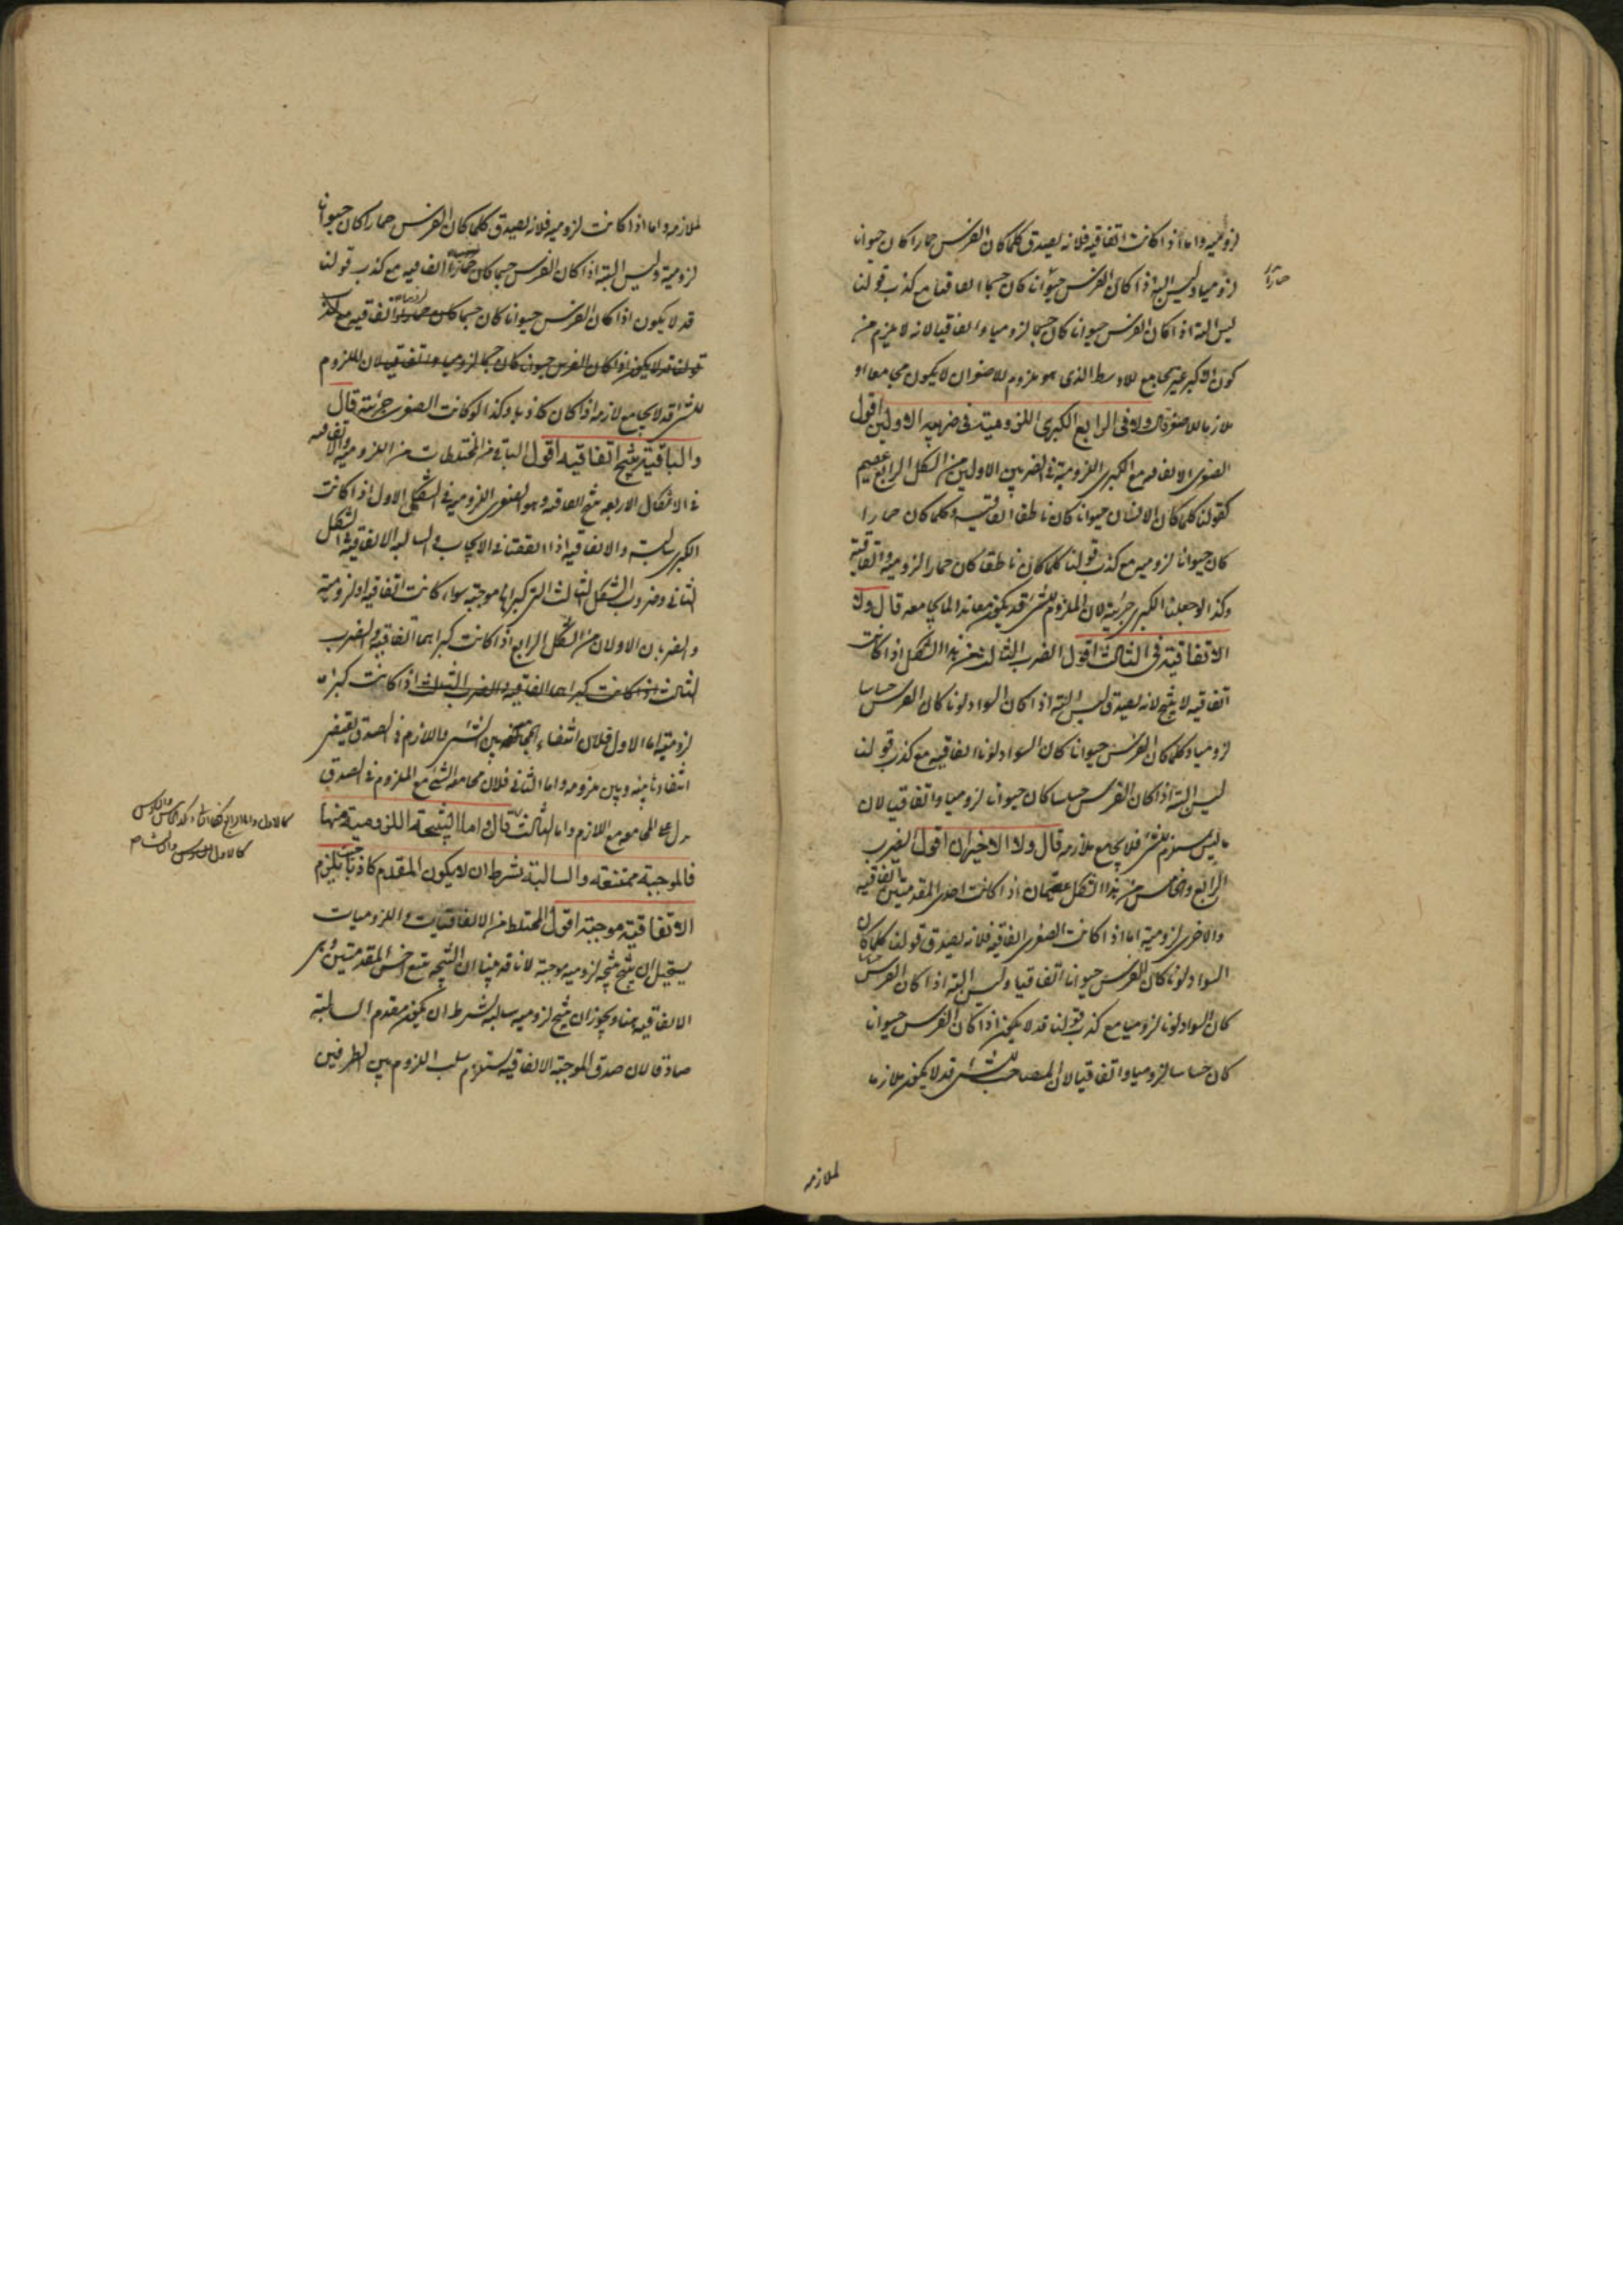 لزومية واما اذا كانت اتفاقية فلانه يصدق كلما كان الفرس حمارا كان حيوانا
لزوميا وليس البتة اذا كان الفرس حيوانا كان جسما اتفاقيا مع كذب قولنا
حمارا
ليس البتة اذا كان الفرس حيوانا كان جسما لزوميا واتفاقيا لانه لا يلزم من
كون الاكبر غير مجامع للاوسط الذى هو ملزوم للاصغر ان لا يكون مجامعا او
ملازما للاصغر قال ولا فى الرابع الكبرى اللزومية فى ضربيه الاولين اقول
الصغرى الاتفاقية مع الكبرى اللزومية فى الضربين الاولين من الشكل الرابع عقيم
كقولنا كلما كان الانسان حيوانا كان ناطقا اتفاقية وكلما كان حمارا
كان حيوانا لزومية مع كذب قولنا كلما كان ناطقا كان حمارا لزومية واتفاقية
وكذا لو جعلنا الكبرى جزئية لان الملزوم للشئ قد يكون معاندا لما يجامعه قال ولا
الاتفاقية فى الثالث اقول الضرب الثالث من هذا الشكل اذا كانت
اتفاقية لا ينتج لانه يصدق ليس البتة اذا كان السواد لونا كان الفرس حساسا
لزوميا وكلما كان الفرس حيوانا كان السواد لونا اتفاقية مع كذب قولنا
ليس البتة اذا كان الفرس حساسا كان حيوانا لزوميا واتفاقيا لان
ما ليس يستلزم للشئ فلا يجامع ملازمه قال ولا الاخيران اقول الضرب
الرابع والخامس من هذا الشكل عقيمان اذا كانت احدى المقدمتين اتفاقية
والاخرى لزومية اما اذا كانت الصغرى اتفاقية فلانه يصدق قولنا كلما كان
السواد لونا كان الفرس حيوانا اتفاقيا وليس البتة اذا كان الفرس حساسا
كان السواد لونا لزوميا مع كذب قولنا قد لا يكون اذا كان الفرس حيوانا
كان حساسا لزوميا واتفاقيا لان المصاحب للشئ قد لا يكون ملازما
لملازمه
لملازمه واما اذا كانت لزومية فلانه يصدق كلما كان الفرس حمارا كان حيوانا
لزومية وليس البتة اذا كان الفرس جسما كان حمارا اتفاقية مع كذب قولنا
قد لا يكون اذا كان الفرس حيوانا كان جسما اتفاقية مع كذب
قولنا قد لا يكون اذا كان الفرس حيوانا كان جسما لزوميا واتفاقيا لان الملزوم
للشئ قد لا يجامع لازمه اذا كان كاذبا وكذا لو كانت الصغرى جزئية قال
والباقية ينتج اتفاقية اقول الباقى من المختلطات من اللزومية والاتفاقية
فى الاشكال الاربعة ينتج اتفاقية وهو الصغرى اللزومية فى الشكل الاول اذا كانت
الكبرى سالبة والاتفاقية اذا اتفقتا فى الايجاب والسالبة الاتفاقية فى الشكل
الثانى وضروب الشكل الثالث التى كبراها موجبة سواء كانت اتفاقية او لزومية
والضربان الاولان من الشكل الرابع اذا كانت كبراهما اتفاقية والضرب
الثالث اذا كانت كبراهما اتفاقية والضرب الثالث اذا كانت كبراه
لزومية اما الاول فلان انتفاء المجامعة بين الشئ واللازم فى الصدق يقتضى
انتفاءها بينه وبين ملزومه واما الثانى فلان مجامعة الشئ مع الملزوم فى الصدق
يدل على المجامعة مع اللازم واما الثالث قال واما النتيجة اللزومية منها
فالموجبة ممتنعة والسالبة بشرط ان لا يكون المقدم كاذبا حيث يلزم
الاتفاقية موجبة اقول المختلط من الاتفاقيات واللزوميات
يستحيل ان ينتج نتيجة لزومية موجبة لانا قد بينا ان النتيجة يتبع اخس المقدمتين وهى
الاتفاقية هنا ويجوز ان ينتج لزومية سالبة بشرط ان يكون مقدم السالبة
صادقا لان صدق الموجبة الاتفاقية يستلزم سلب اللزوم بين الطرفين